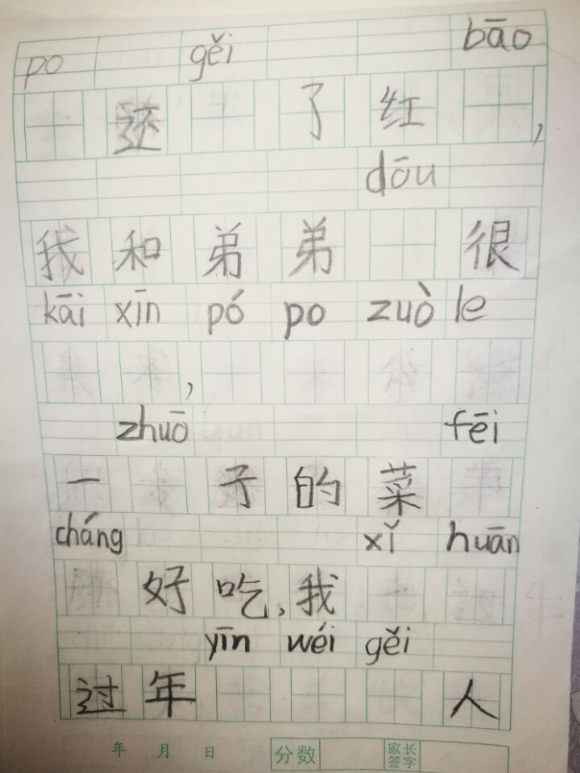 po gěi bāo
还 了 红 ，
dōu
我 和 弟 弟 很
kāi xīn pó po zuò le
，
zhuō fēi
一 子 的 菜
cháng xǐ huān
好 吃，我
yīn wéi gěi
过 年 人
年 月 日 分数 家长签字